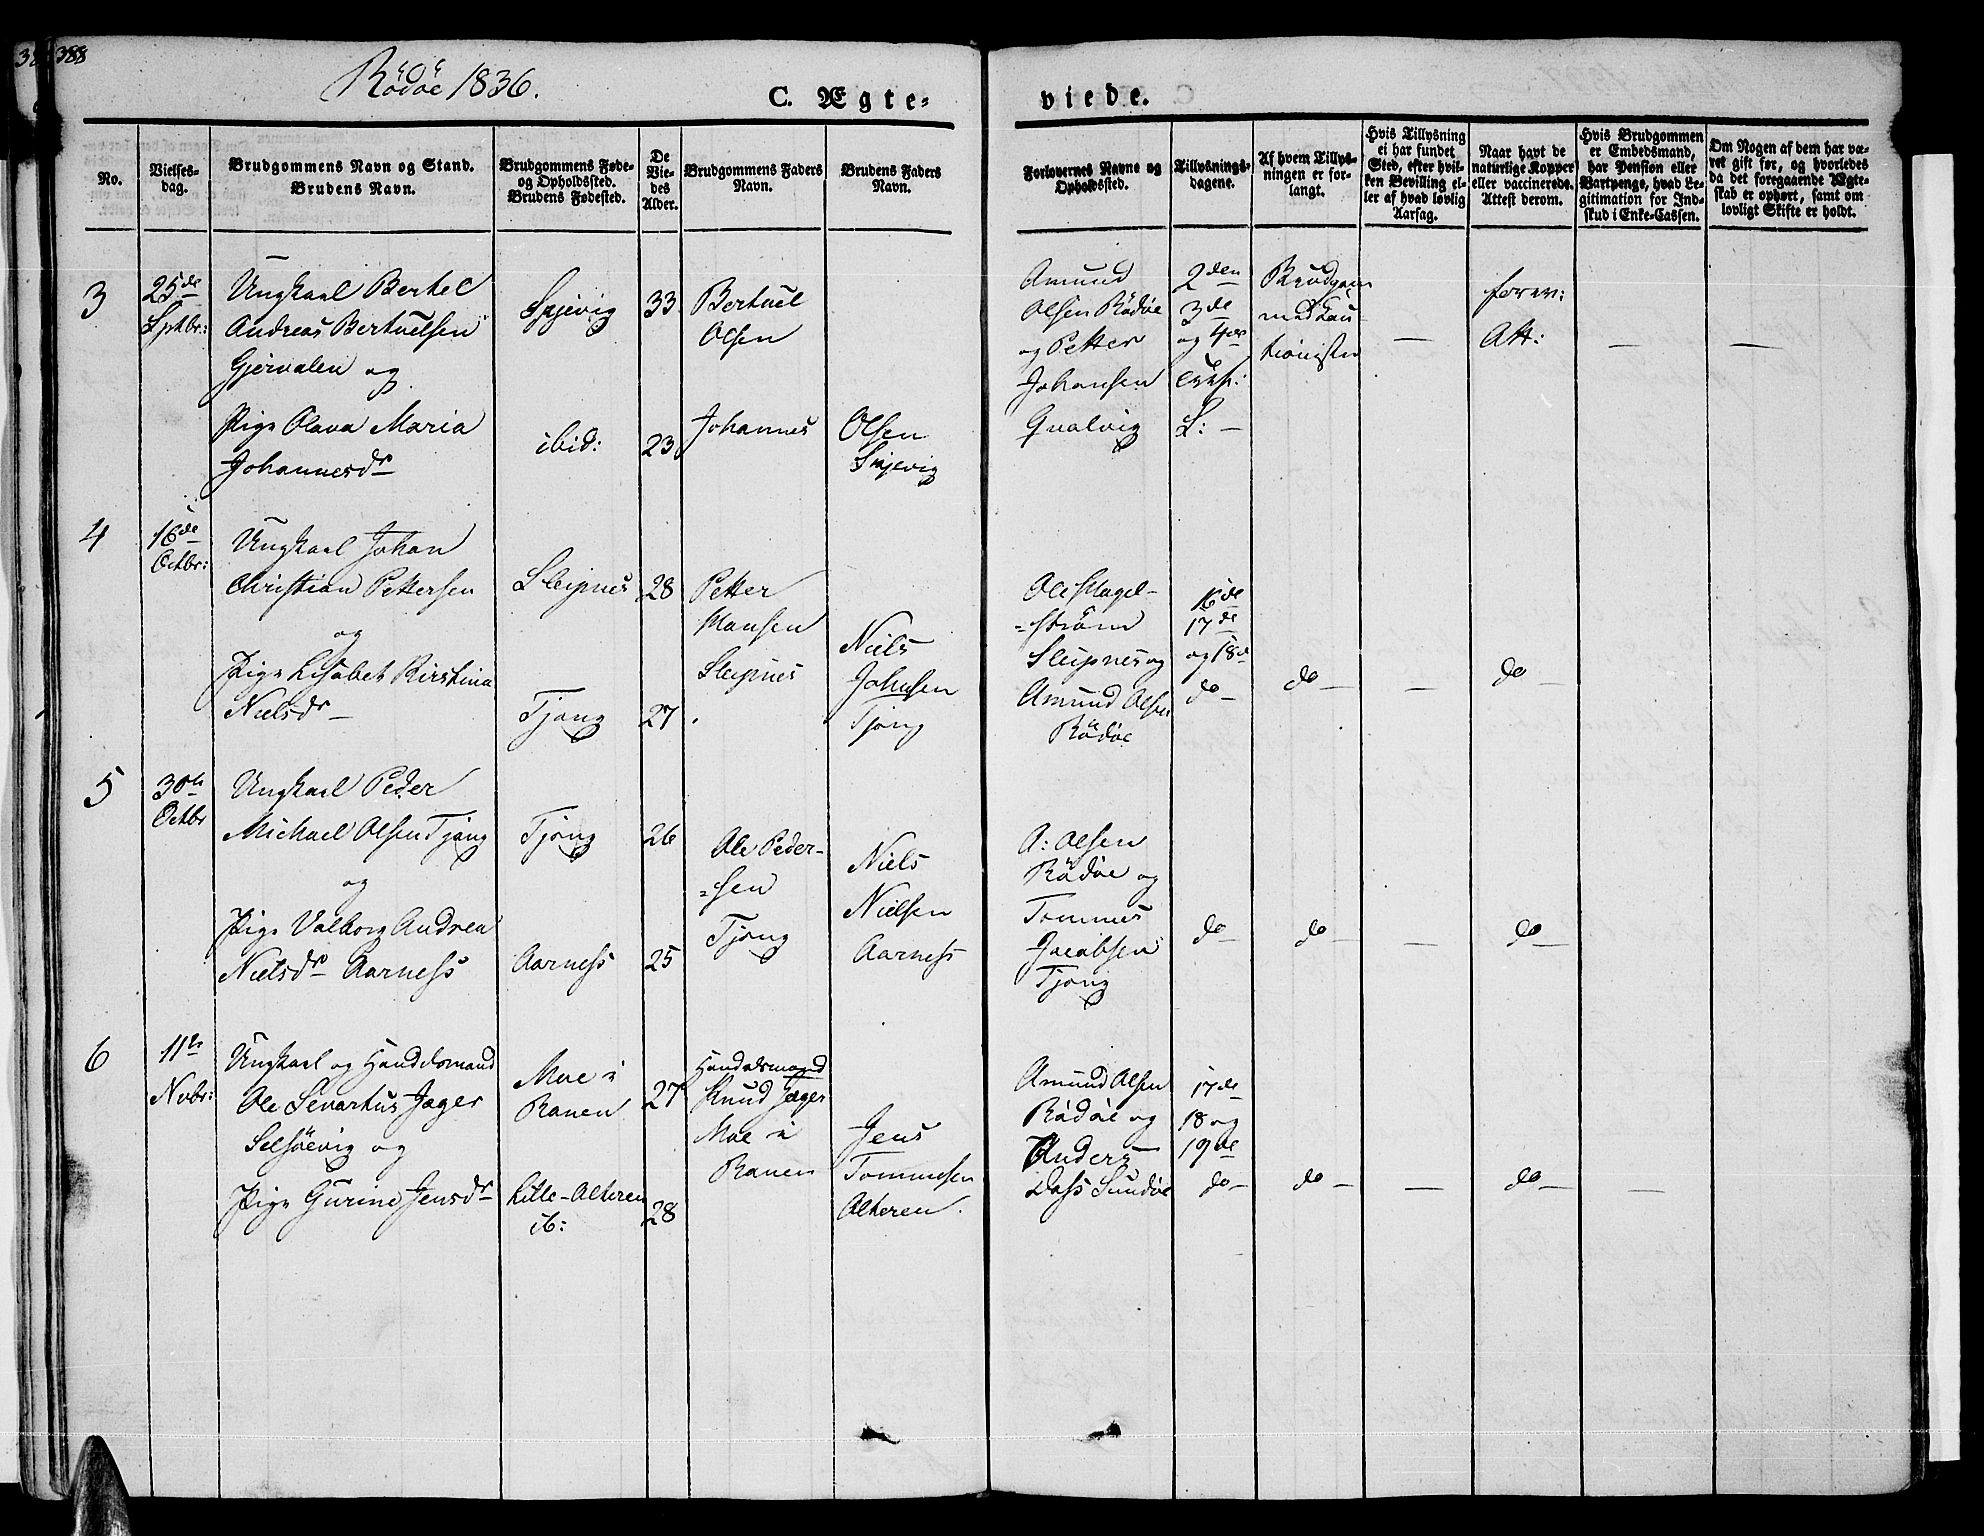 388
Rödöe 1836.
C. Ægte-
viede.
No.
Vielses-
dag.
Brudgommens Navn og Stand.
Brudens Navn.
Brudgommens Føde-
og Opholdssted.
Brudens Fødested.
De
Vie-
des
Alder.
Brudgommens Faders
Navn.
Brudens Faders
Navn.
Forlovernes Navne og
Opholdssted.
Tillysnings-
dagene.
Af hvem Tillys-
ningen er for-
langt.
Hvis Tillysning
ei har fundet
Sted, efter hvil-
ken Bevilling el-
ler af hvad lovlig
Aarsag.
Naar havt de
naturlige Kopper
eller vaccinerede.
Attest derom.
Hvis Brudgommen
er Embedsmand,
har Pension eller
Vartpenge, hvad Le-
gitimation for Ind-
skud i Enke-Cassen.
Om Nogen af dem har væ-
ret gift før, og hvorledes
da det foregaaende Ægte-
skab er ophørt, samt om
lovligt Skifte er holdt.
3
25de
Sptbr:
Ungkarl Bertel
Andreas Bertuelsen
Gjervalen og
Pige Olava Maria
Johannesdr
ibid:
33
23
Bertuel
Olsen
Johannes
Olsen
Amund
Olsen Rödöe
og Petter
Johansen
Qvalvig
2den
3de
og 4de
S:
Brudgom
med Cau-
tionister
—
forev:
Att:
—
—
4
16de
Octbr:
Ungkarl Johan
Christian Pettersen
og
Pige Lisabet Kirstina
Nielsdr
Sleipnes
Tjong
28
27
Petter
Hansen
Sleipnes
Niels
Johnsen
Tjong
Ole Hagel-
=ström
Sleipnes og
Amund Olsen
Rödöe
16de
17de
og 18de
do —
do —
—
do —
5
30te
Octbr
Ungkarl Peder
Michael Olsen Tjong
og
Pige Valborg Andrea
Nielsdr Aarness
Tjong
Aarness
26
25
Ole Peder-
=sen
Tjong
Niels
Nielsen
Aarness
A: Olsen
Rödöe og
Tommes
Jacobsen
Tjong
do —
do —
—
do —
6
11te
Novbr:
Ungkarl og Handelsmand
Ole Sevartus Jæger
Selsöevig og
Pige Gurine Jensdr
Moe i
Ranen
Lille-Alteren
ib:
27
28
Handelsmand
Knud Jæger
Moe i
Ranen
Jens
Tommesen
Alteren.
Amund Olsen
Rödöe og
Anders
Dass Sundöe
17de
18 og
19de
do —
do —
—
do —
—